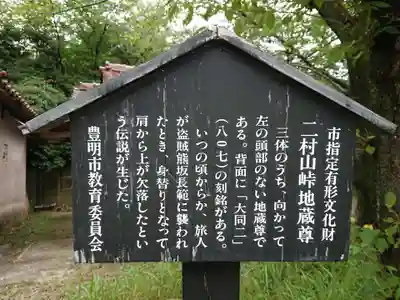 市指定有形文化財
二村山峠地蔵尊
三体のうち、向かって
左の頭部のない地蔵尊で
ある。背面に「大同二」
（八〇七）の刻銘がある。
いつの頃からか、旅人
が盗賊熊坂長範に襲われ
たとき、身替りとなって
肩から上が欠落したとい
う伝説が生じた。
豊明市教育委員会